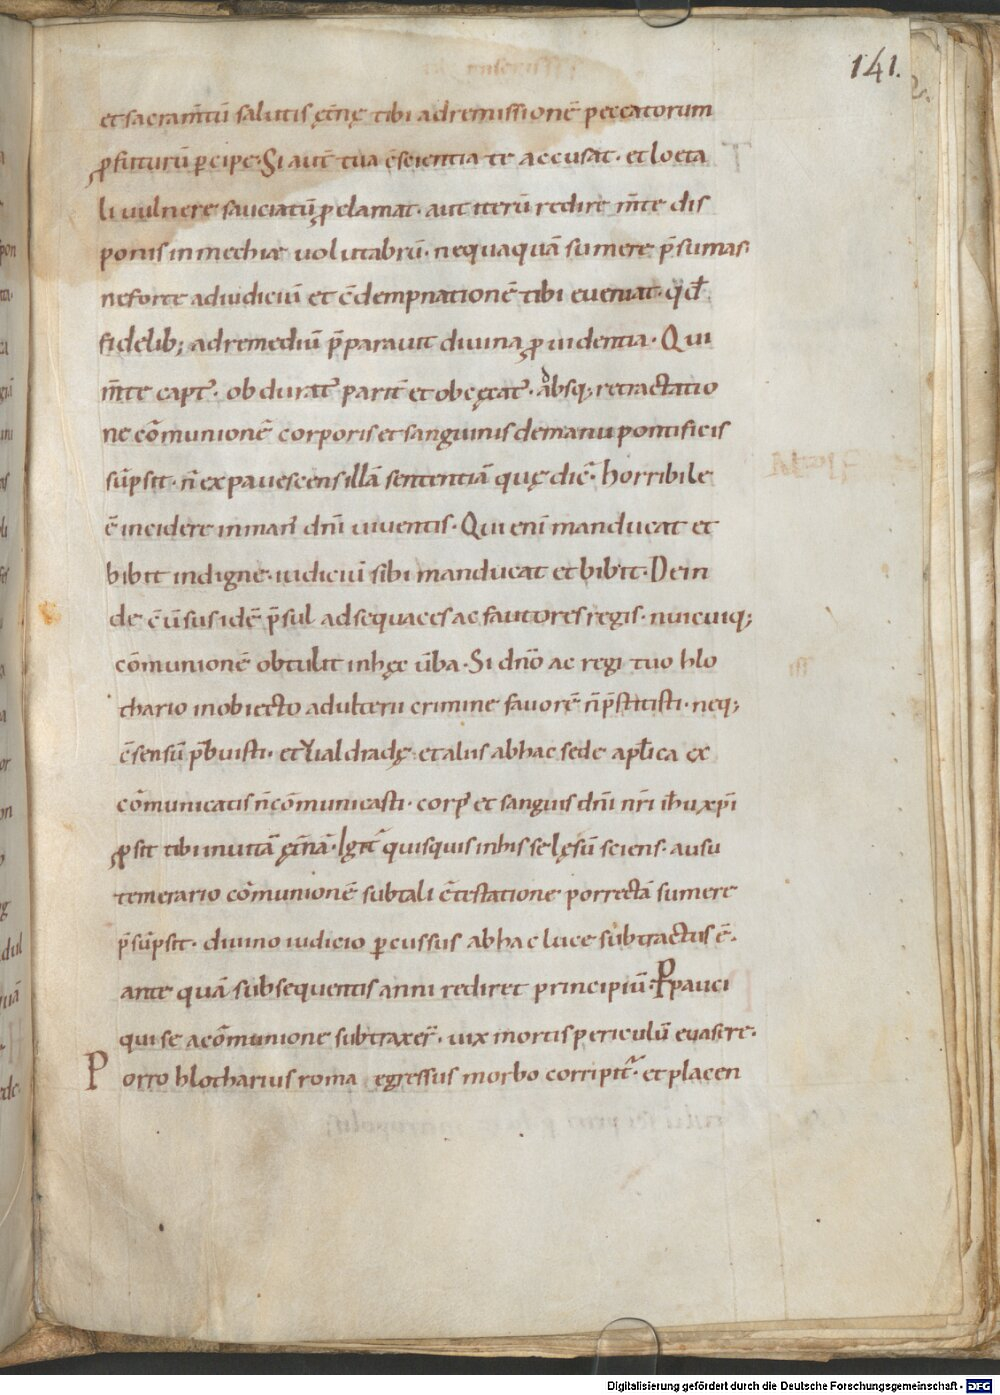 141.
et sacram̅tu̅ salutis ęt̅nę tibi ad remissione̅ peccatorum
ꝓfuturu̅ p̲cipe. Si aut̅ tua c̅scientia te accusat. et loeta
li uulnere sauciatu̅ ꝓclamat. aut iteru̅ redire m̅te dis
ponis in mechiae uolutabru̅. nequaqua̅ sumere p̅sumas.
ne forte ad iudiciu̅ et c̅dempnatione̅ tibi eueniat. qd̅
fidelib; ad remediu̅ p̅parauit diuina ꝓuidentia. Qui
m̅te capt᾽. obdurat᾽ parit̅ et obcęcat᾽. absq; retractatio
ne co̅munione̅ corporis et sanguinis de manu pontificis
su̅psit. n̅ expauescens illa̅ sententia̅ quę dic̅. horribile
e̅ incidere in man᾽ dn̅i uiuentis. Qui eni̅ manducat et
bibit indigne. iudiciu̅ sibi manducat et bibit. Dein
de c̅u̅sus ide̅ p̅sul ad sequaces ac fautores regis. unicuiq;
co̅munione̅ obtulit in hęc u̅ba. Si dn̅o ac regi tuo hlo
thario in obiecto adulterii crimine fauore̅ n̅ p̅stitisti. neq;
c̅sensu̅ p̅buisti. et Ualdradę et aliis ab hac sede apl̅ica ex
co̅municatis n̅ co̅municasti. corp᾽ et sanguis dn̅i nr̅i ih̅u xp̅i
ꝓsit tibi in uita̅ ęt̅na̅. Igit̅ quisquis in his se lęsu̅ sciens. ausu
temerario co̅munione̅ sub tali c̅testatione porrecta̅ sumere
p̅su̅psit. diuino iudicio p̲cussus ab hac luce subtractus e̅.
ante qua̅ subsequentis anni rediret principiu̅. P̲pauci
qui se a co̅munione subtraxer̅. uix mortis periculu̅ euasere.
Porro hlotharius roma egressus morbo corripit᾽. et placen
Digitalisierung gefördert durch die Deutsche Forschungsgemeinschaft - DFG